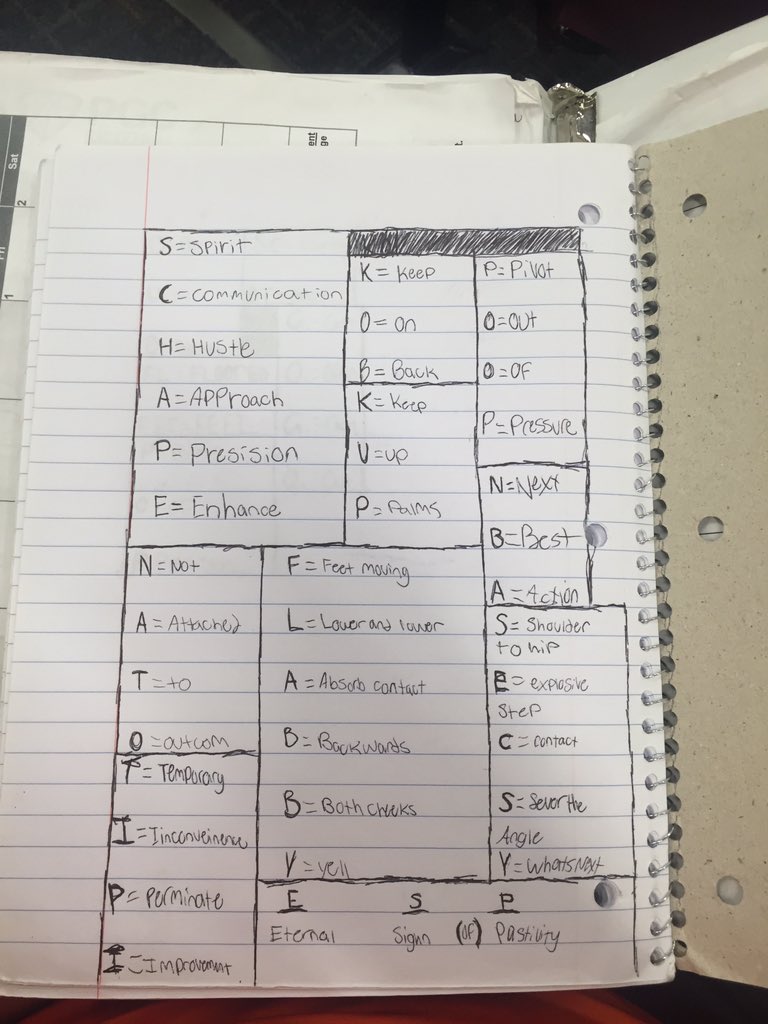 S = Spirit
C = communication
H = Hustle
A = Approach
P = Presision
E = Enhance
K = Keep
O = on
B = Back
K = Keep
U = up
P = Palms
P = Pivot
O = Out
O = OF
P = Pressure
N = Next
B = Best
A = Action
N = Not
A = Attached
T = to
O = outcom
T = Temporary
I = Iinconveinence
P = Perminate
I = Improvement
F = Feet moving
L = Lower and lower
A = Absorb contact
B = Backwards
B = Both cheeks
Y = yell
S = Shoulder
to hip
E = explosive
Step
C = contact
S = Sever the
Angle
Y = whats next
E S P
Eternal Sign (of) Pastivity
Sat
2
1